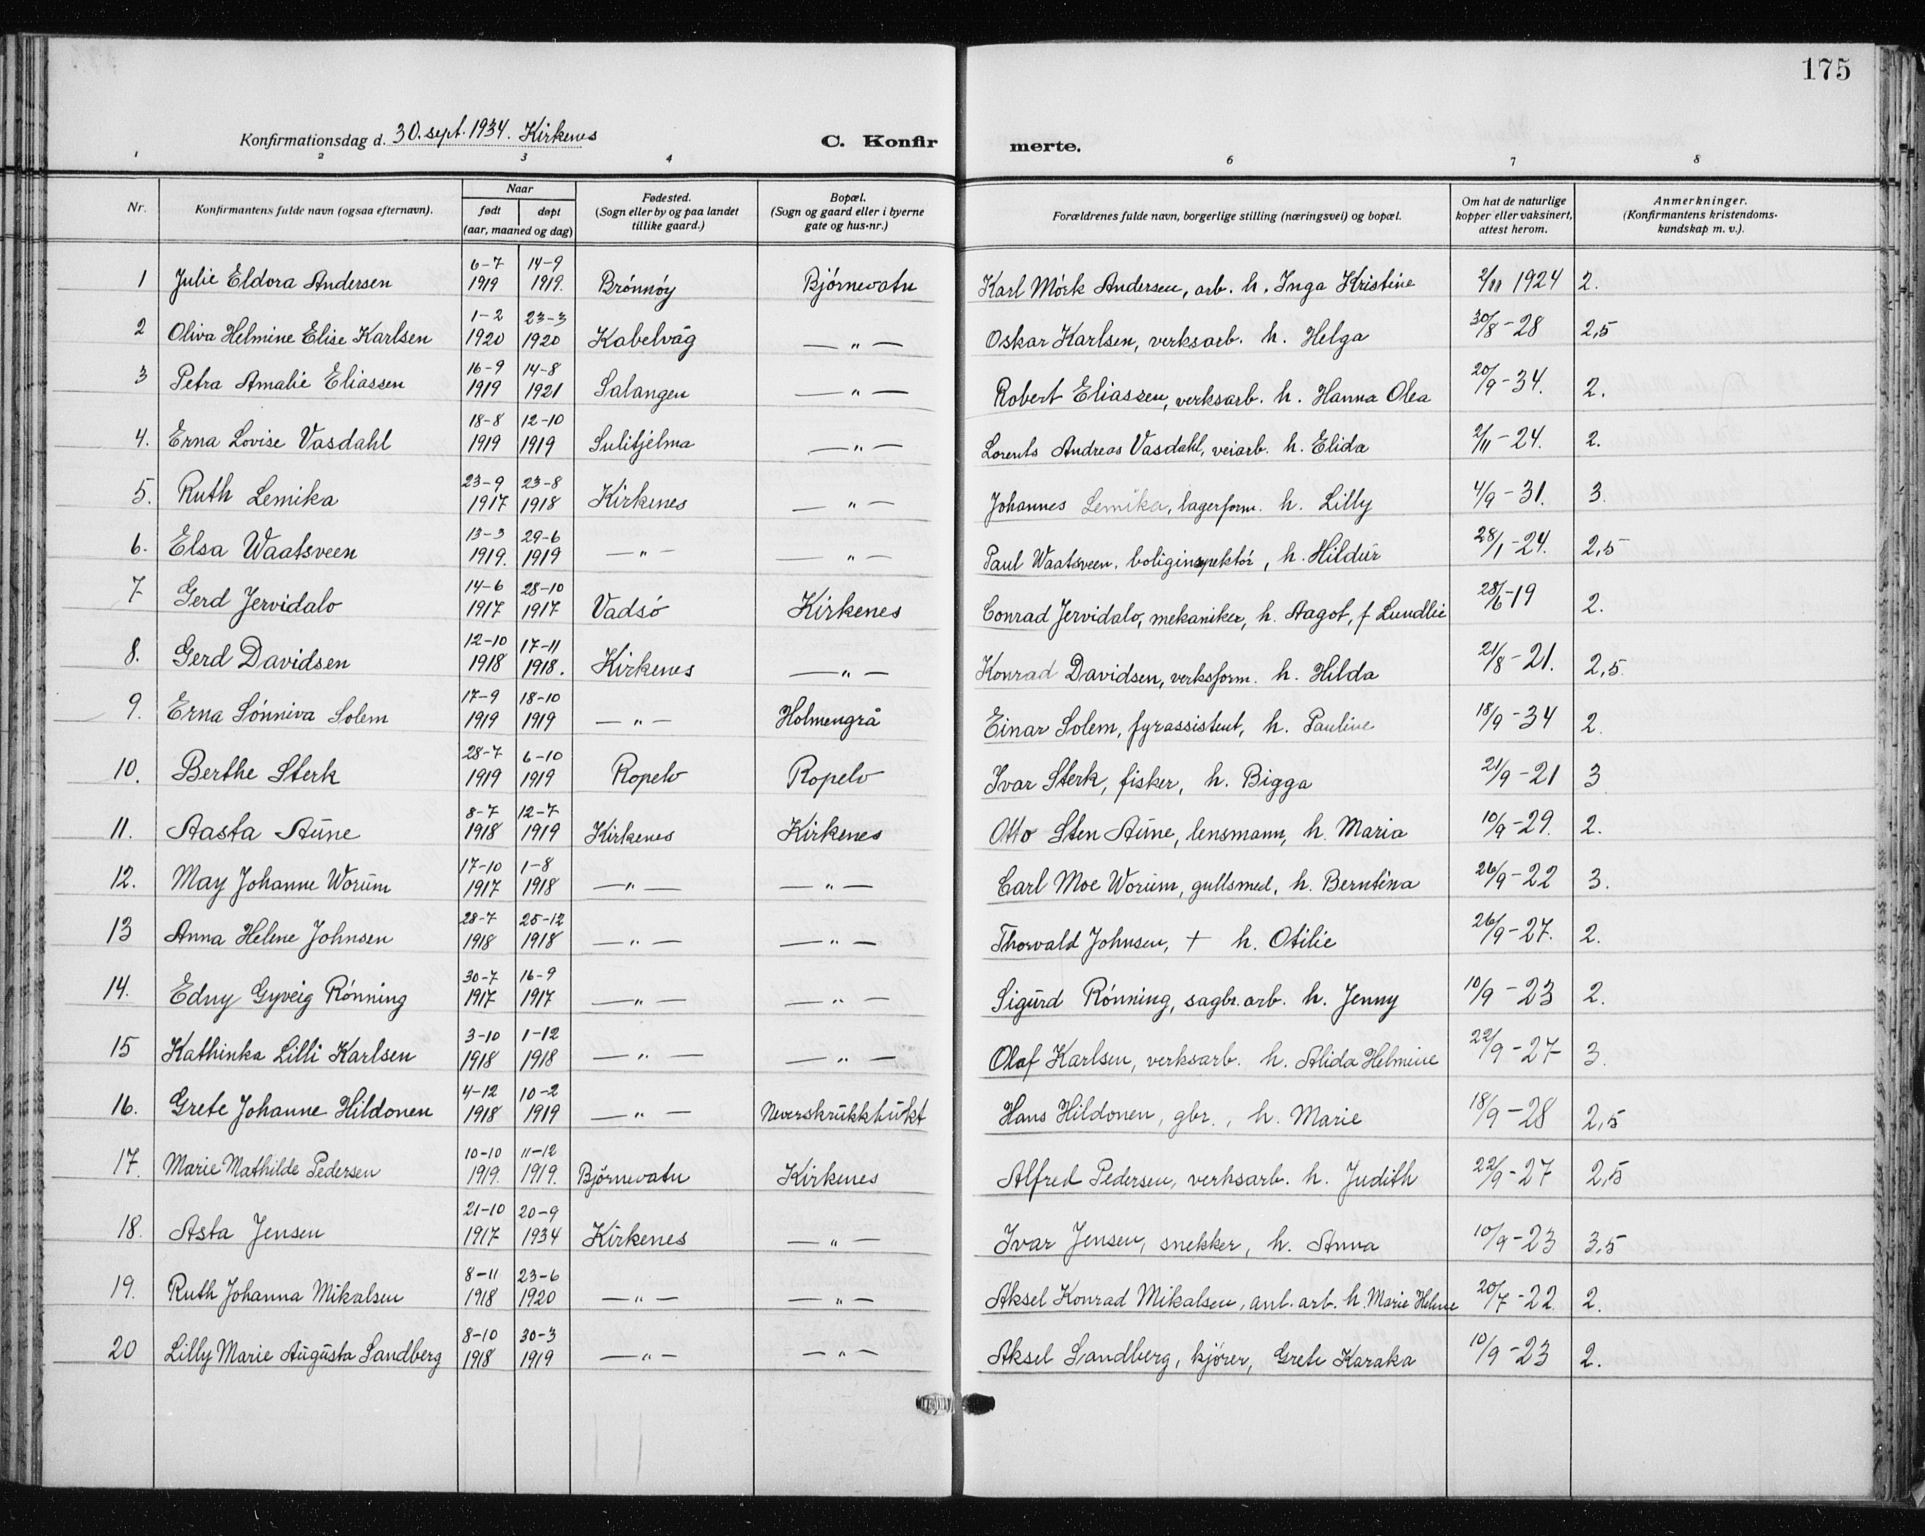 175
Konfirmationsdag d. 30. sept. 1934. Kirkenes C. Konfir merte.
1 2 3 4 6 7 8
Nr. Konfirmantens fulde navn (ogsaa efternavn). Naar født døpt (aar, maaned og dag) Fødested. (Sogn eller by og paa landet tillike gaard.) Bopæl. (Sogn og gaard eller i byerne gate og hus-nr.) Forældrenes fulde navn, borgerlige stilling (næringsvei) og bopæl. Om hat de naturlige kopper eller vaksinert, attest herom. Anmerkninger. (Konfirmantens kristendoms- kundskap m. v.).
1 Julie Eldora Andersen 6-7 1919 14-9 1919. Brønnøy Bjørnevatn Karl Mørk Andersen, arb. h. Inga Kristine 2/11 1924 2.
2 Oliva Helmine Elise Karlsen 1-2 1920 23-3 1920 Kabelvåg — " — Oskar Karlsen, verksarb. h. Helga 30/8-28 2,5
3 Petra Amalie Eliassen 16-9 1919 14-8 1921 Salangen — " — Robert Eliassen, verksarb. h. Hanna Olea 20/9-34. 2.
4. Erna Lovise Vasdahl 18-8 1919 12-10 1919 Sulitjelma — " — Lorents Andreas Vasdahl, veiarb. h. Elida 2/11-24. 2.
5. Ruth Lemika 23-9 1917 23-8 1918 Kirkenes — " — Johannes Lemika, lagerform. h. Lilly 4/9-31. 3.
6. Elsa Waatsveen 13-3 1919. 29-6 1919 — " — — " — Paul Waatsveen, boliginspektør, h. Hildur 28/1-24. 2,5
7 Gerd Jervidalo 14-6 1917 28-10 1917 Vadsø Kirkenes Conrad Jervidalo, mekaniker, h. Aagot, f Lundlie 28/6-19 2.
8. Gerd Davidsen 12-10 1918 17-11 1918. Kirkenes — " — Konrad Davidsen, verksform. h. Hilda 21/8-21. 2,5.
9. Erna Sønniva Solem 17-9 1919 18-10 1919 — " — Holmengrå Einar Solem, fyrassistent, h. Pauline 18/9-34 2.
10. Berthe Sterk 28-7 1919 6-10 1919 Ropelv Ropelv Ivar Sterk, fisker, h. Bigga 21/9-21 3
11. Aasta Aune 8-7 1918 12-7 1919 Kirkenes Kirkenes Otto Sten Aune, lensmann, h. Maria 10/9-29. 2.
12. May Johanne Worum 17-10 1917 1-8 1918 — " — — " — Carl Moe Worum, gullsmed, h. Berntina 26/9-22 3.
13 Anna Helene Johnsen 28-7 1918 25-12 1918 — " — — " — Thorvald Johnsen, + h. Otilie 26/9-27. 2.
14. Edny Gyveig Rønning 30-7 1917 16-9 1917 — " — — " — Sigurd Rønning, sagbr. arb. h. Jenny 10/9-23 2.
15 Kathinka Lilli Karlsen 3-10 1918 1-12 1918 — " — — " — Olaf Karlsen, verksarb. h. Alida Helmine 22/9-27 3.
16. Grete Johanne Hildonen 4-12 1918 10-2 1919 — " — Neverskrukkbukt Hans Hildonen, gbr., h. Marie 18/9-28 2,5
17. Marie Mathilde Pedersen 10-10 1919. 11-12 1919. Bjørnevatn Kirkenes Alfred Pedersen, verksarb. h. Judith 22/9-27 2,5
18. Asta Jensen 21-10 1917 20-9 1934 Kirkenes — " — Ivar Jensen, snekker, h. Anna 10/9-23 3,5
19. Ruth Johanna Mikalsen 8-11 1918 23-6 1920 — " — — " — Aksel Konrad Mikalsen, anl. arb. h. Marie Helene 20/7-22. 2.
20 Lilly Marie Augusta Sandberg 8-10 1918 30-3 1919 — " — — " — Aksel Sandberg, kjører, Grete Karaka 10/9-23 2.